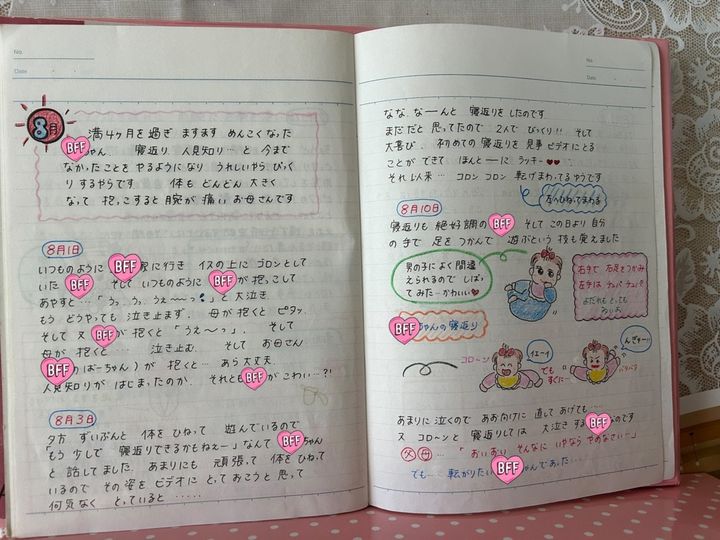 No.
Date
8月
満4ヶ月を過ぎ ますます めんこくなった
BFFちゃん 寝返り、人見知り… と 今まで
なかったことを やるようになり うれしいやら びっく
りするやらです 体も どんどん 大きく
なって 抱っこすると 腕が 痛い お母さんです
8月1日
いつものように BFF家に行き イスの上に ゴロンとして
いた BFF そして いつものように BFFが 抱っこして
あやすと…「うっ、うっ、うえ〜〜っ」と 大泣き
もう どうやっても 泣き止まず、母が 抱くと ピタッ、
そして 又 BFFが 抱くと 「うえ〜っ」、 そして
母が 抱く… 泣き止む、 そして お母さん
BFF(のばーちゃん)が 抱く… あら 大丈夫、
人見知りが はじまったのか、それとも BFFが こわい…?!
8月3日
夕方 ずいぶんと 体を ひねって 遊んでいるので
「もう 少しで 寝返りできるかもねえー」なんて BFFちゃん
と 話してました あまりにも 頑張って 体を ひねって
いるので その姿を ビデオに とっておこうと 思って
何気なく とっていると ・・・・・
No.
Date
なな、なーんと 寝返りを したのです
まだだと 思ってたので 2人で びっくり!! そして
大喜び、 初めての 寝返りを 見事 ビデオにとる
ことが できて ほんとーに ラッキー♥♥
それ以来… コロン コロン 転げまわってるやうです
左へひねってまわる
8月10日
寝返りも 絶好調の BFF そして この日より 自分
の手で 足をつかんで 遊ぶという 技も 覚えました
男の子に よく間違
えられるので しばっ
てみた…かわいい♥
右手で 右足をつかみ
左手は チュパチュパ
よだれも とっても
BFFちゃんの寝返り
コローン
イエーイ
でも
すぐに…
んぎゃー
バタバタ
あまりに 泣くので あお向けに 直してあげても……
又 コローンと 寝返りしては 大泣きする BFFなのです
父 母 …「おいおい そんなに いやなら やめなさいー」
でも… 転がりたい BFFちゃんであった…